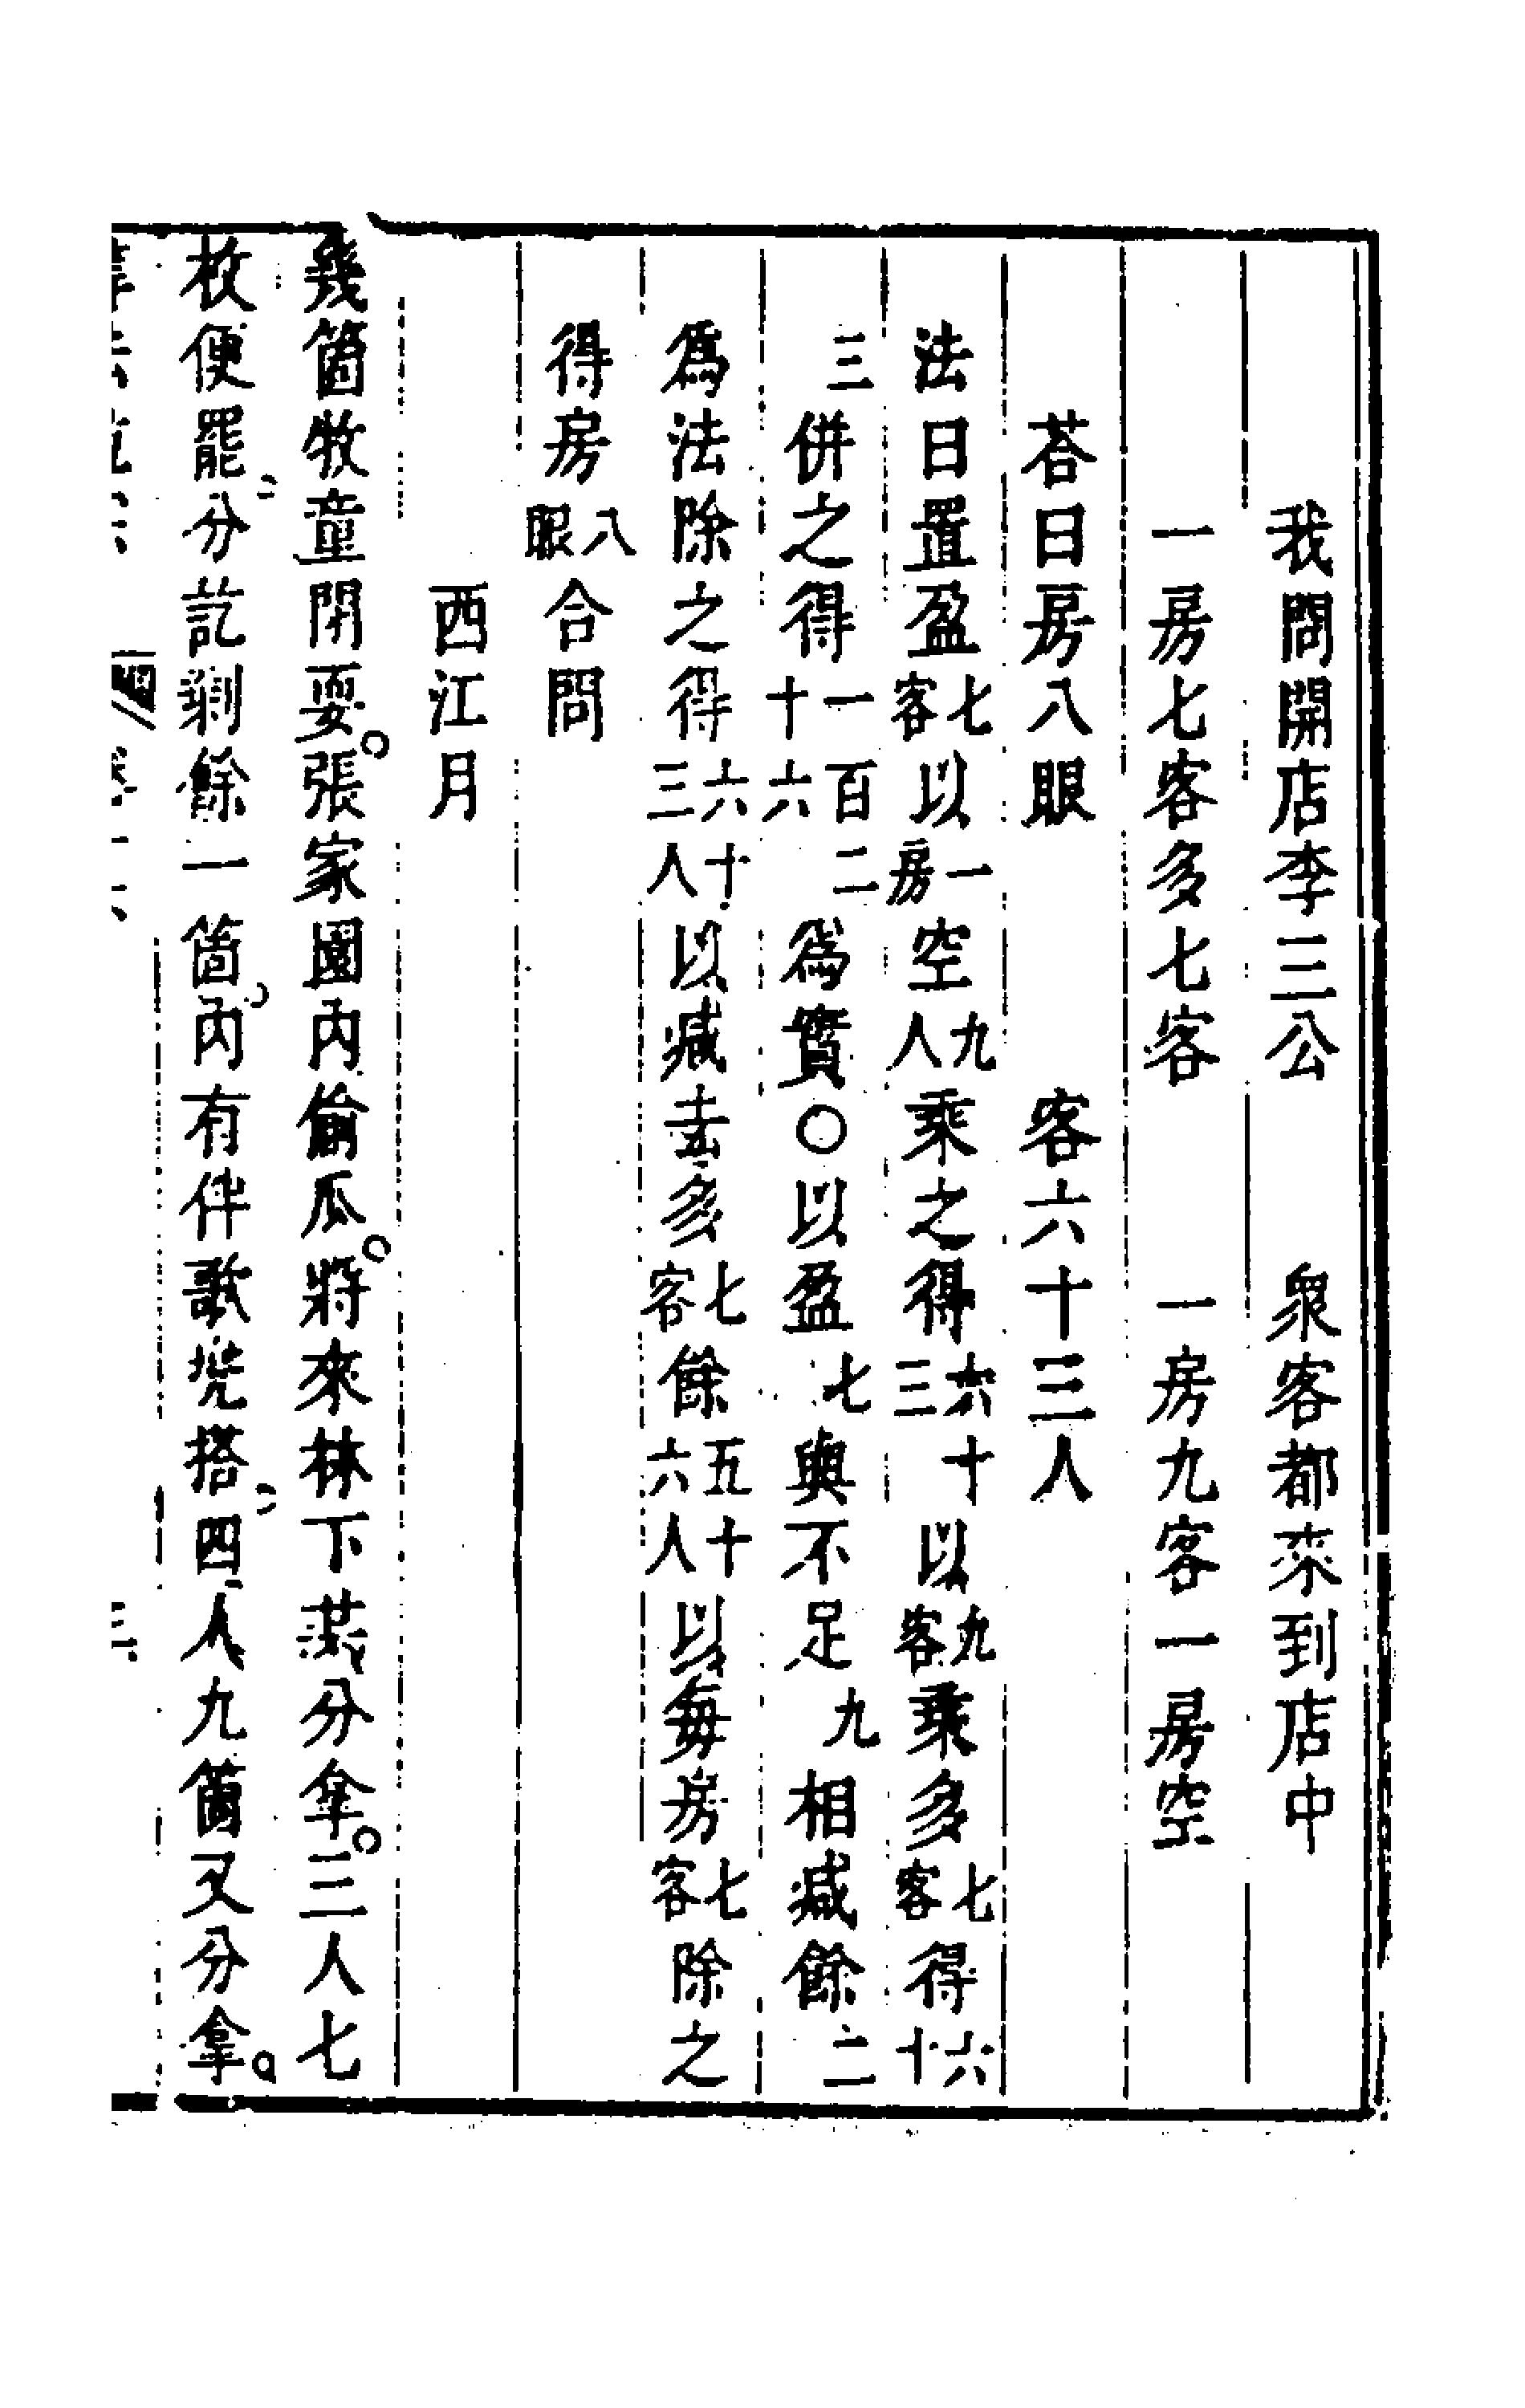 我問開店李三公　衆客都來到店中
一房七客多七客　一房九客一房空
荅曰房八眼　客六十三人
法曰置盈七客以一房空九人乘之得六十三以九客乘多七客得六十
三併之得一百二十六爲實○以盈七與不足九相减餘二
爲法除之得六十三人以减去多七客餘五十六人以每房七客除之
得房八眼合問
西江月
幾箇牧童閑耍。張家園内偷瓜。將來林下分拿。三人七
枚便罷。分訖剩餘一箇。内有伴歌兜搭。四人九箇又分拿。